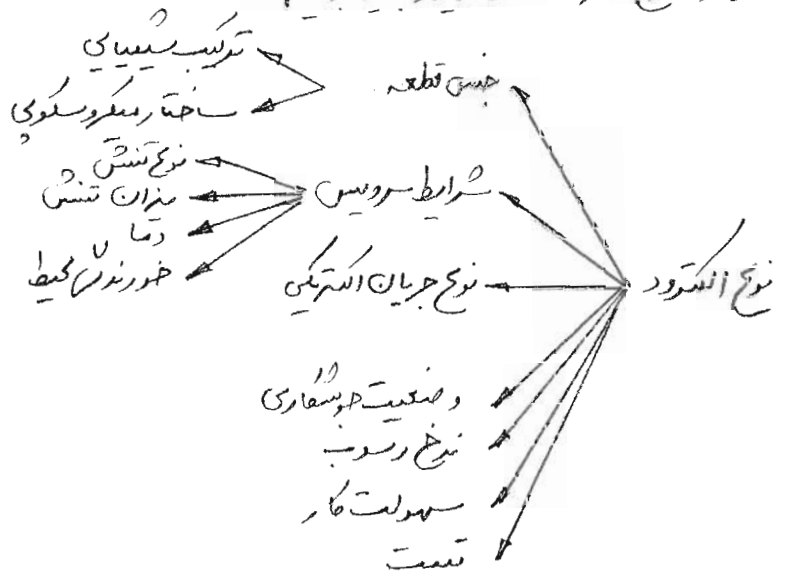 نوع الکترود
جنس قطعه
ترکیب شیمیایی
ساختار میکروسکوپی
شرایط سرویس
نوع تنش
میزان تنش
دما
خورندگی محیط
نوع جریان الکتریکی
وضعیت جوشکاری
نرخ رسوب
سهولت کار
قیمت